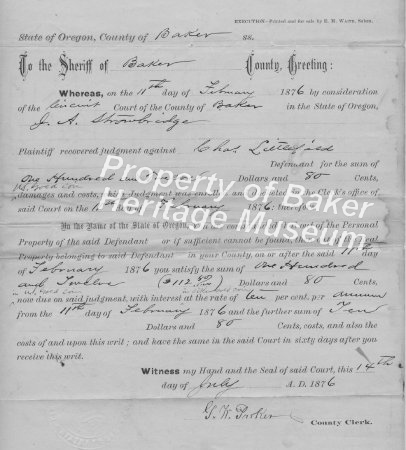 EXECUTION—Printed and for sale by E. M. WAITE, Salem.
State of Oregon, County of Baker ss.
To the Sheriff of Baker County, Greeting:
Whereas, on the 11th day of February 1876 by consideration
of the Circuit Court of the County of Baker in the State of Oregon,
J. A. Strowbridge
Plaintiff recovered judgment against Chas. Littlefield
Defendant for the sum of
One Hundred and Dollars and 80 Cents,
damages and costs, which Judgment was enrolled and docketed in the Clerk's office of
said Court on the 11th day of February 1876:
In the Name of the State of Oregon, out of the Personal
Property of the said Defendant or if sufficient cannot be found,
Property belonging to said Defendant in your County, on or after the said 11th day
of February 1876 you satisfy the sum of One Hundred
and Twelve ($112 80/100) Dollars and 80 Cents,
now due on said judgment, with interest at the rate of ten per cent. per annum
from the 11th day of February 1876 and the further sum of Ten
Dollars and 80 Cents, costs, and also the
costs of and upon this writ; and have the same in said Court in sixty days after you
receive this writ.
Witness my Hand and the Seal of said Court, this 14th
day of July A. D. 1876
G. W. Parker
County Clerk.
Property of Baker
Heritage Museum